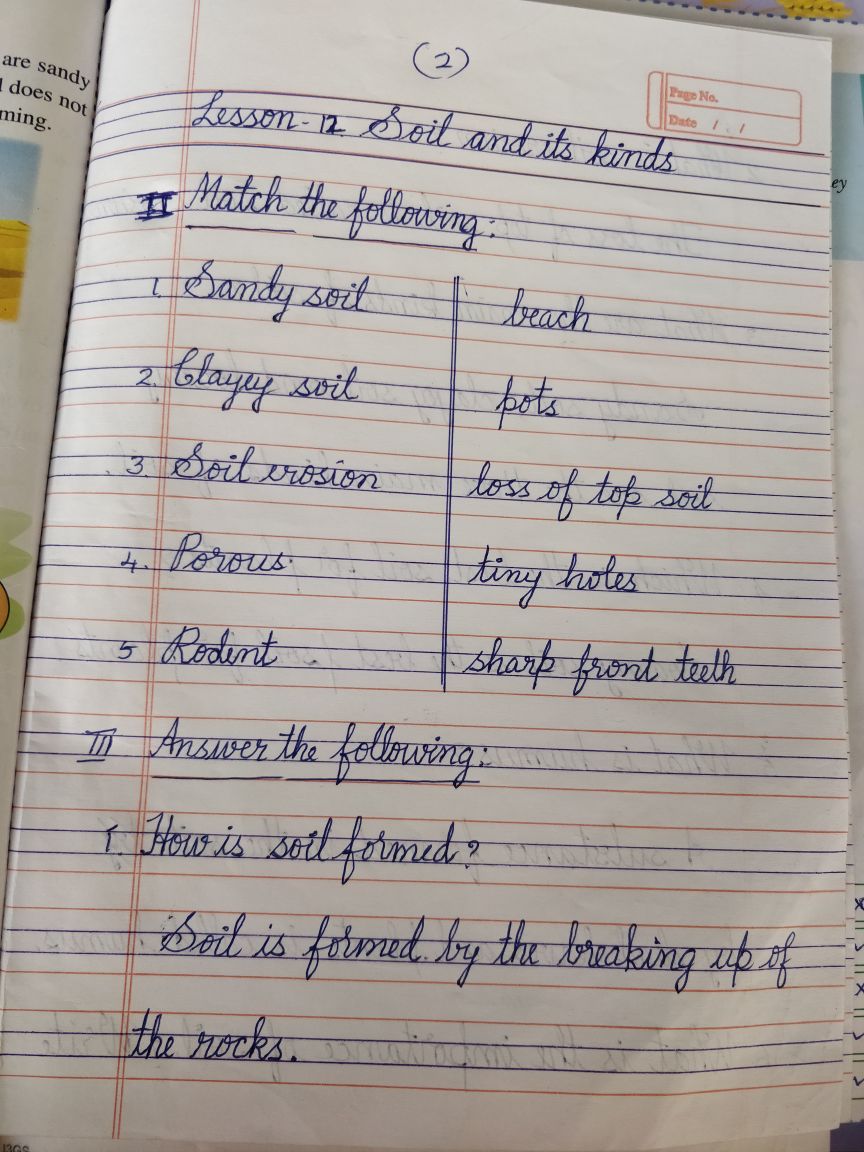 are sandy
does not
ming.
(2)
Page No.
Date / /
Lesson-12 Soil and its kinds
II Match the following:
1. Sandy soil beach
2. Clayey soil pots
3. Soil erosion loss of top soil
4. Porous tiny holes
5 Rodent sharp front teeth
III Answer the following:
1. How is soil formed?
Soil is formed by the breaking up of
the rocks.
ey